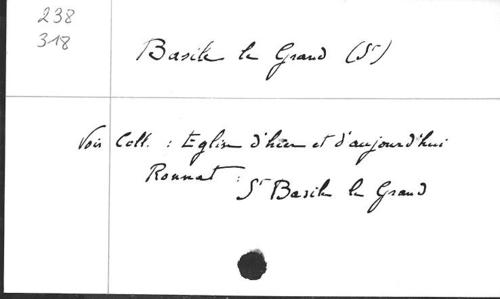 238
318
Basile le Grand (St)
Voir Coll. : Eglise d'hier et d'aujourd'hui
Ronnat :
St Basile le Grand